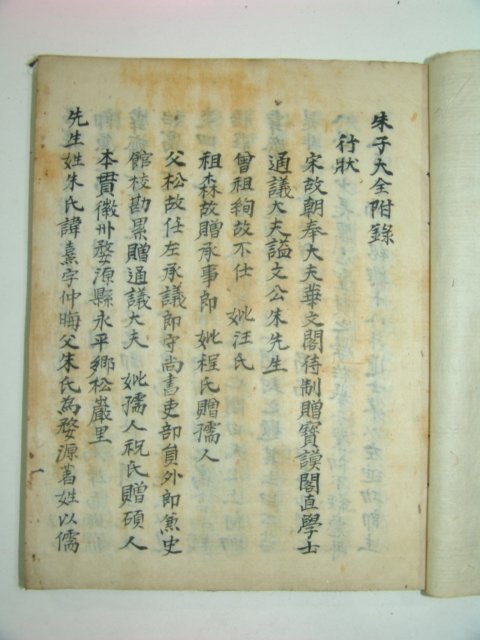 朱子大全附錄
行狀
宋故朝奉大夫華文閣待制贈寳謨閣直學士
通議大夫謚文公朱先生
曾祖絢故不仕 妣汪氏
祖森故贈承事郎 妣程氏贈孺人
父松故任左承議郎守尚書吏部員外郎兼史
館校勘累贈通議大夫 妣孺人祝氏贈碩人
本貫徽州婺源縣永平鄉松巖里
先生姓朱氏諱熹字仲晦父朱氏為婺源著姓以儒
一